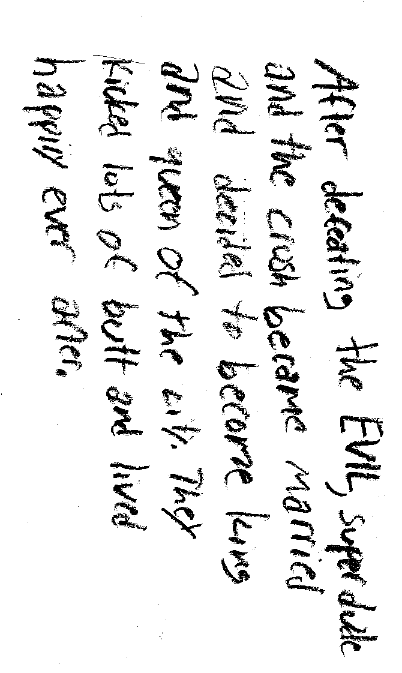 After defeating the EVIL, super dude
and the crush became married
and decided to become king
and queen of the city. They
kicked lots of butt and lived
happily ever after.